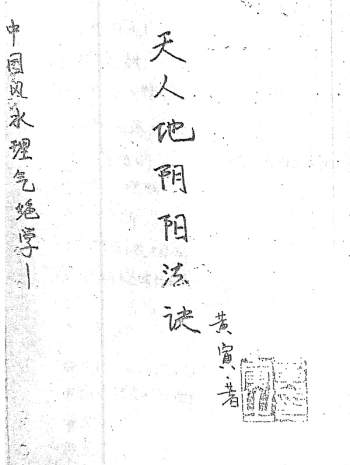 中国风水理气绝学—
天人地阴阳法诀
黄寅·著